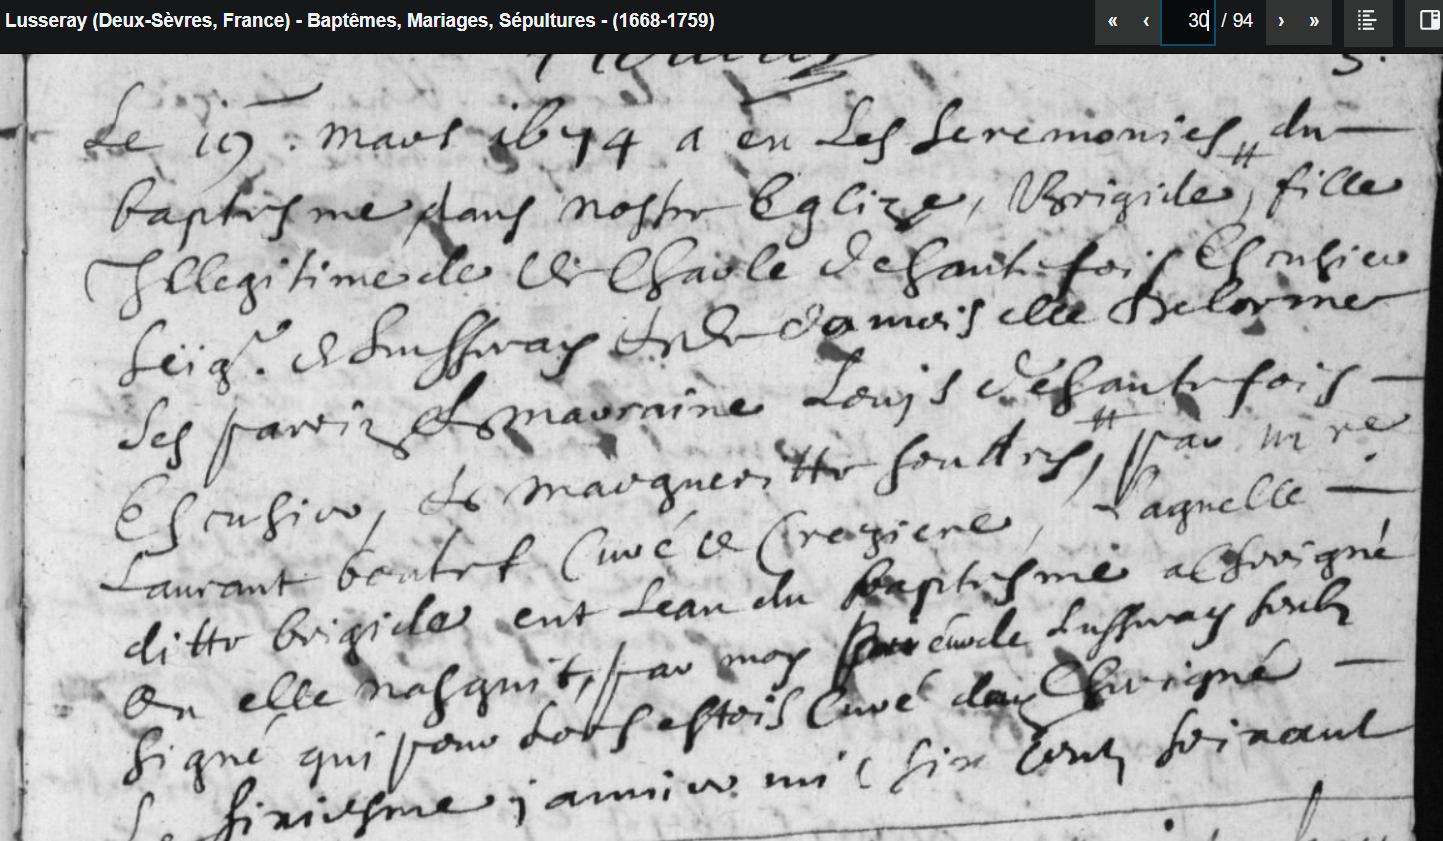 Lusseray (Deux-Sèvres, France) - Baptêmes, Mariages, Sépultures - (1668-1759)
« ‹ 30 / 94 › »
Le 19. mars 1674 a eu Les Seremonies du
baptesme dans nostre Eglize, Brigide, fille
Illegitime de Charle dehautefois Escusier
Seigr. de Lusseray et de damoiselle Delorme
Ses parrin et marraine Louis dehautefois
Escusier, et margueritte, par mre
Laurant boutet Curé de Crezieres, Laquelle
ditte brigide eut Leau du baptesme a Chevigné
ou elle nasquit, par moy curé de Lusseray soubz
signé qui pour Lors estois Curé dud Chevigné
Le sixiesme janvier mil six cent soixant